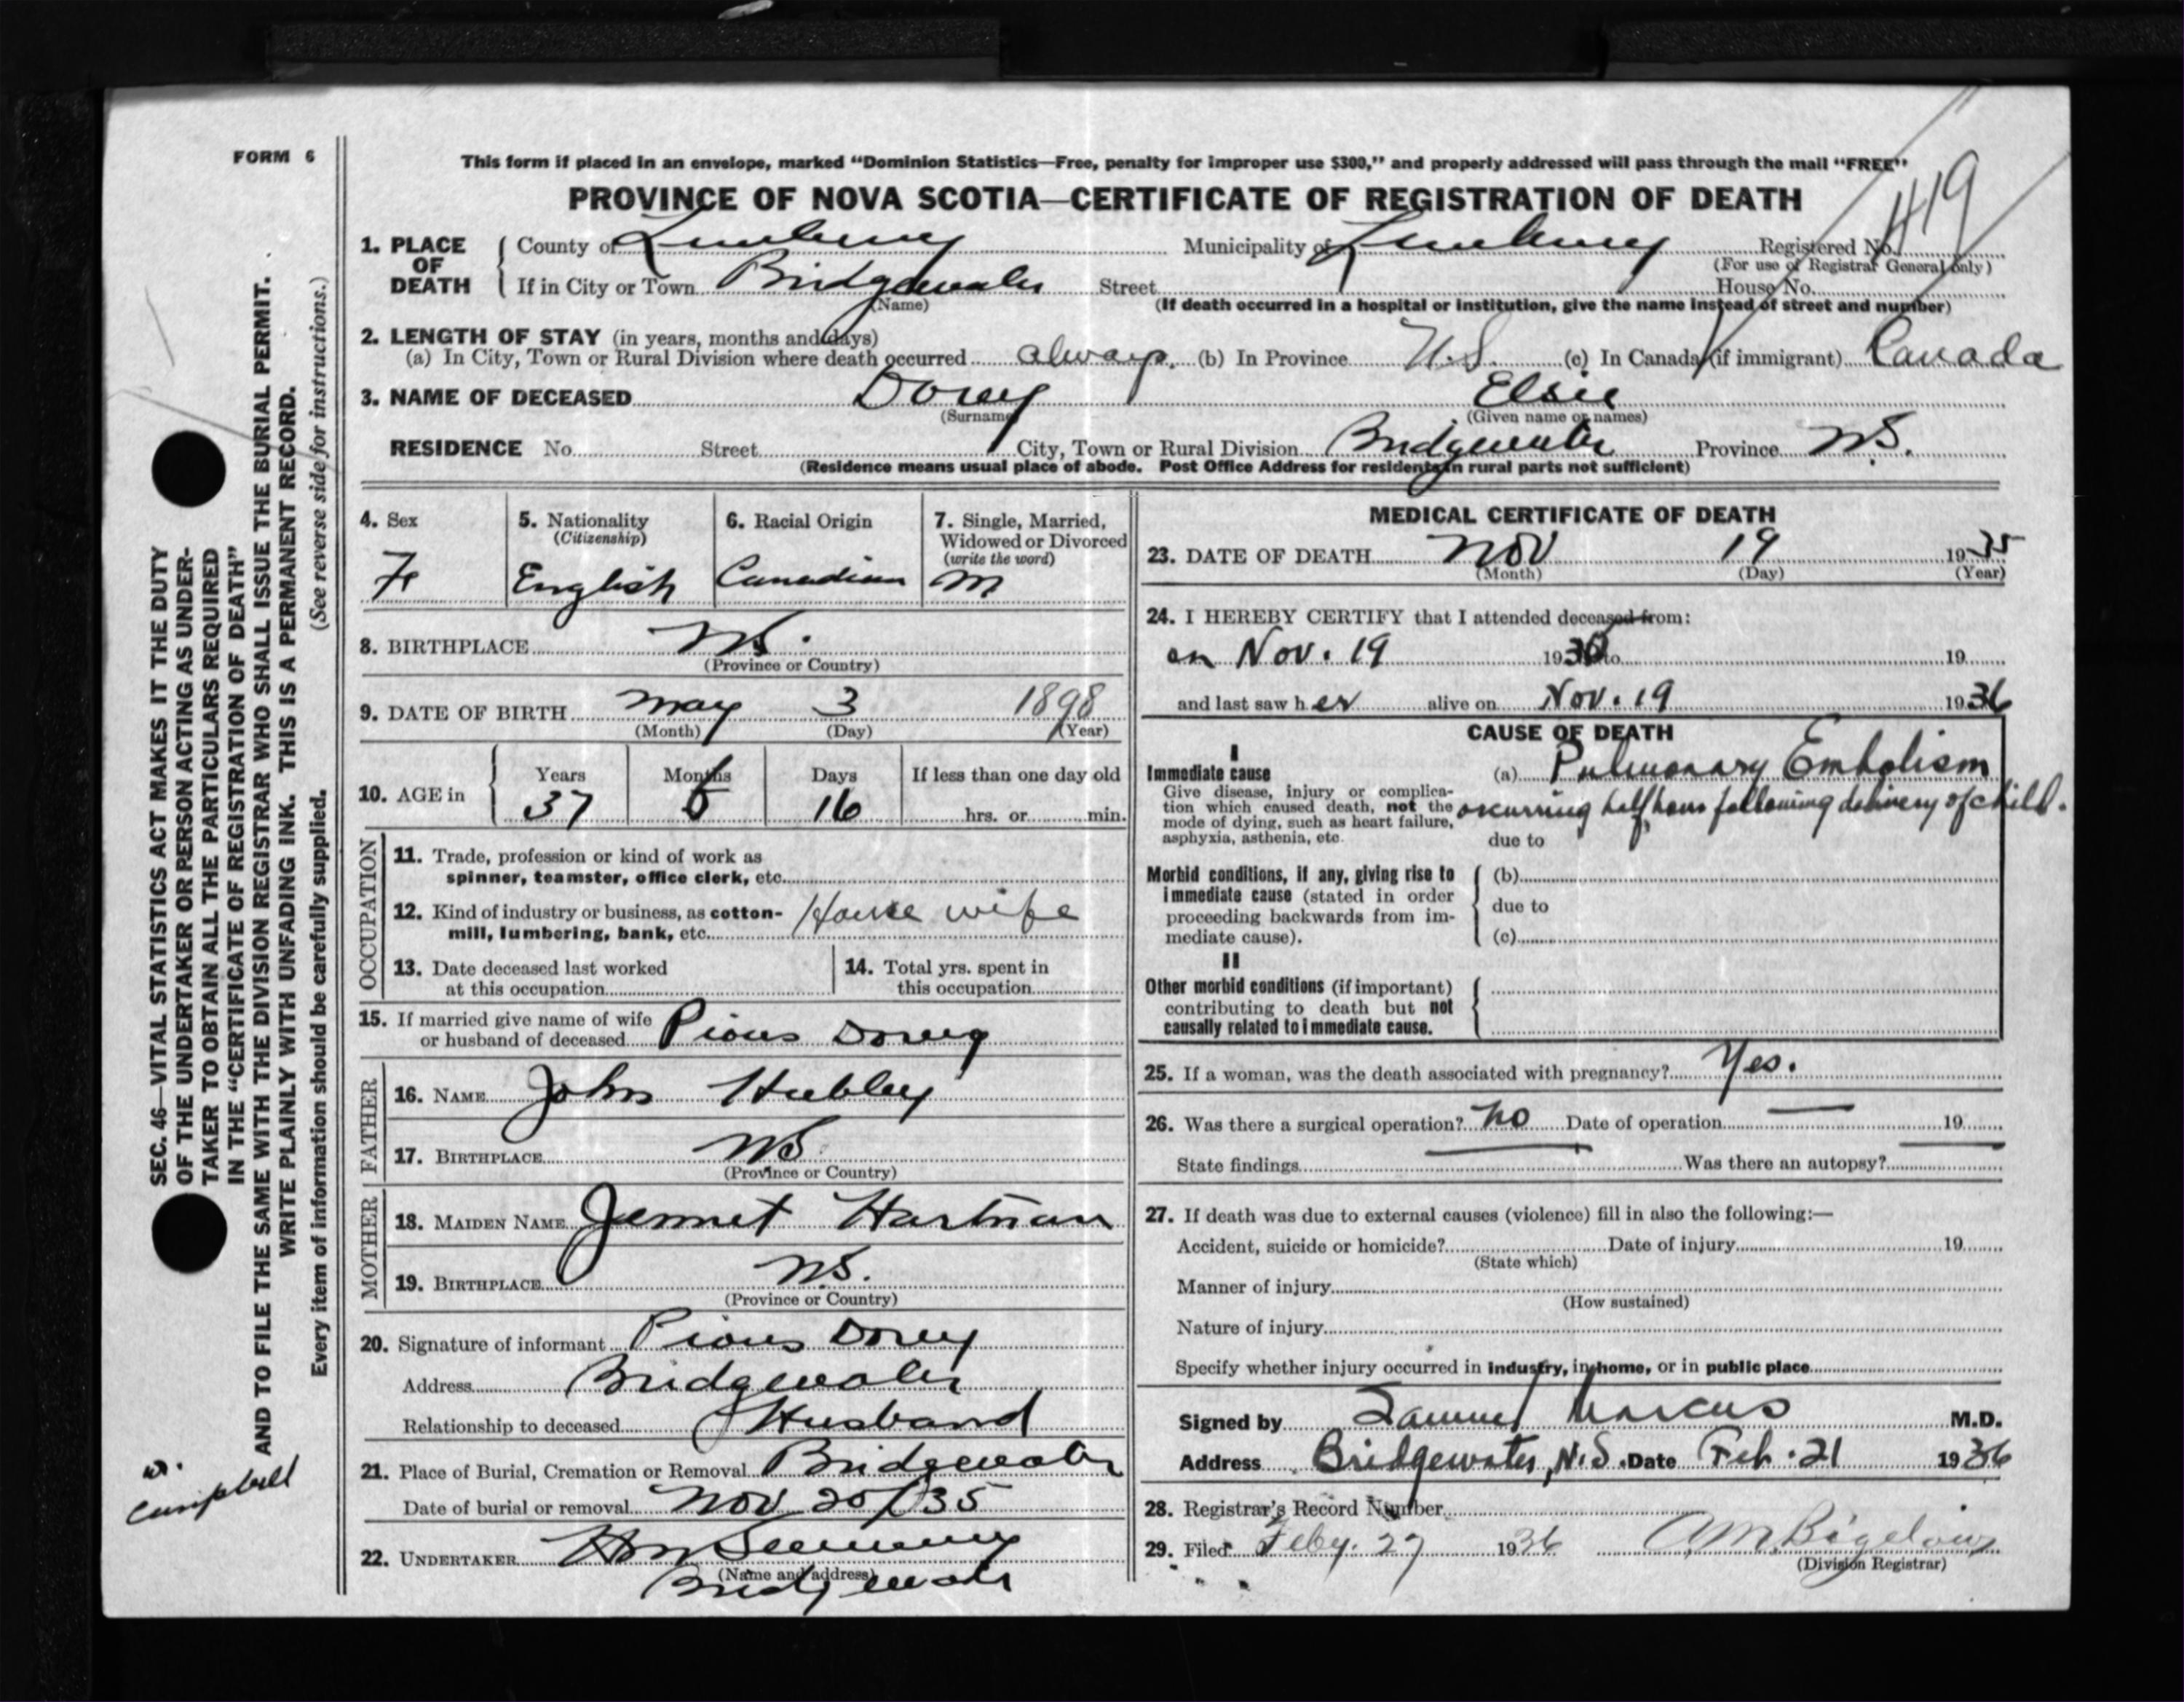 FORM 6
This form if placed in an envelope, marked “Dominion Statistics—Free, penalty for improper use $300,” and properly addressed will pass through the mail “FREE”
PROVINCE OF NOVA SCOTIA—CERTIFICATE OF REGISTRATION OF DEATH
419
1. PLACE OF DEATH County of Lunenburg Municipality of Lunenburg Registered No.
(For use of Registrar General only)
If in City or Town Bridgewater Street House No.
(Name) (If death occurred in a hospital or institution, give the name instead of street and number)
2. LENGTH OF STAY (in years, months and days)
(a) In City, Town or Rural Division where death occurred always. (b) In Province N.S. (c) In Canada (if immigrant) Canada
3. NAME OF DECEASED Dorey Elsie
(Surname) (Given name or names)
RESIDENCE No. Street City, Town or Rural Division Bridgewater Province N.S.
(Residence means usual place of abode. Post Office Address for residents in rural parts not sufficient)
4. Sex F
5. Nationality (Citizenship) English
6. Racial Origin Canadian
7. Single, Married, Widowed or Divorced (write the word) M
8. BIRTHPLACE N.S.
(Province or Country)
9. DATE OF BIRTH May 3 1898
(Month) (Day) (Year)
10. AGE in Years Months Days If less than one day old
37 6 16 hrs. or min.
OCCUPATION
11. Trade, profession or kind of work as
spinner, teamster, office clerk, etc.
12. Kind of industry or business, as cotton-
mill, lumbering, bank, etc. House wife
13. Date deceased last worked
at this occupation
14. Total yrs. spent in
this occupation
15. If married give name of wife
or husband of deceased Pious Dorey
FATHER
16. NAME John Hubley
17. BIRTHPLACE NS
(Province or Country)
MOTHER
18. MAIDEN NAME Jennet Hartman
19. BIRTHPLACE N.S.
(Province or Country)
20. Signature of informant Pious Dorey
Address Bridgewater
Relationship to deceased Husband
21. Place of Burial, Cremation or Removal Bridgewater
Date of burial or removal Nov 20/35
22. UNDERTAKER
(Name and address)
Bridgewater
MEDICAL CERTIFICATE OF DEATH
23. DATE OF DEATH Nov 19 1935
(Month) (Day) (Year)
24. I HEREBY CERTIFY that I attended deceased from:
on Nov. 19 19 to 19
and last saw her alive on Nov. 19 1936
CAUSE OF DEATH
I
Immediate cause (a) Pulmonary Embolism
Give disease, injury or complica-
tion which caused death, not the
mode of dying, such as heart failure,
asphyxia, asthenia, etc.
occurring half hour following delivery of child.
due to
Morbid conditions, if any, giving rise to
immediate cause (stated in order
proceeding backwards from im-
mediate cause).
(b)
due to
(c)
II
Other morbid conditions (if important)
contributing to death but not
causally related to immediate cause.
25. If a woman, was the death associated with pregnancy? Yes.
26. Was there a surgical operation? No Date of operation — 19
State findings Was there an autopsy?
27. If death was due to external causes (violence) fill in also the following:—
Accident, suicide or homicide? Date of injury 19
(State which)
Manner of injury
(How sustained)
Nature of injury
Specify whether injury occurred in industry, in home, or in public place
Signed by Samuel Marcus M.D.
Address Bridgewater, N.S. Date Feb. 21 1936
28. Registrar's Record Number
29. Filed Feby. 27 1936 A.M. Bigelow
(Division Registrar)
SEC. 46—VITAL STATISTICS ACT MAKES IT THE DUTY
OF THE UNDERTAKER OR PERSON ACTING AS UNDER-
TAKER TO OBTAIN ALL THE PARTICULARS REQUIRED
IN THE “CERTIFICATE OF REGISTRATION OF DEATH”
AND TO FILE THE SAME WITH THE DIVISION REGISTRAR WHO SHALL ISSUE THE BURIAL PERMIT.
WRITE PLAINLY WITH UNFADING INK. THIS IS A PERMANENT RECORD.
Every item of information should be carefully supplied. (See reverse side for instructions.)
W. Campbell